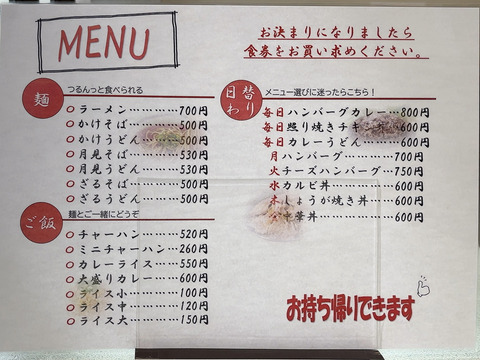 MENU
お決まりになりましたら
食券をお買い求めください。
麺
つるんっと食べられる
○ラーメン…………700円
○かけそば…………500円
○かけうどん………500円
○月見そば…………530円
○月見うどん………530円
○ざるそば…………500円
○ざるうどん………500円
ご飯
麺とご一緒にどうぞ
○チャーハン………520円
○ミニチャーハン…260円
○カレーライス……550円
○大盛りカレー……600円
○ライス小…………100円
○ライス中…………120円
○ライス大…………150円
日替わり
メニュー選びに迷ったらこちら！
毎日 ハンバーグカレー…800円
毎日 照り焼きチキン丼…600円
毎日 カレーうどん………600円
月 ハンバーグ……………700円
火 チーズハンバーグ……750円
水 カルビ丼………………600円
木 しょうが焼き丼………600円
中華丼………………600円
お持ち帰りできます